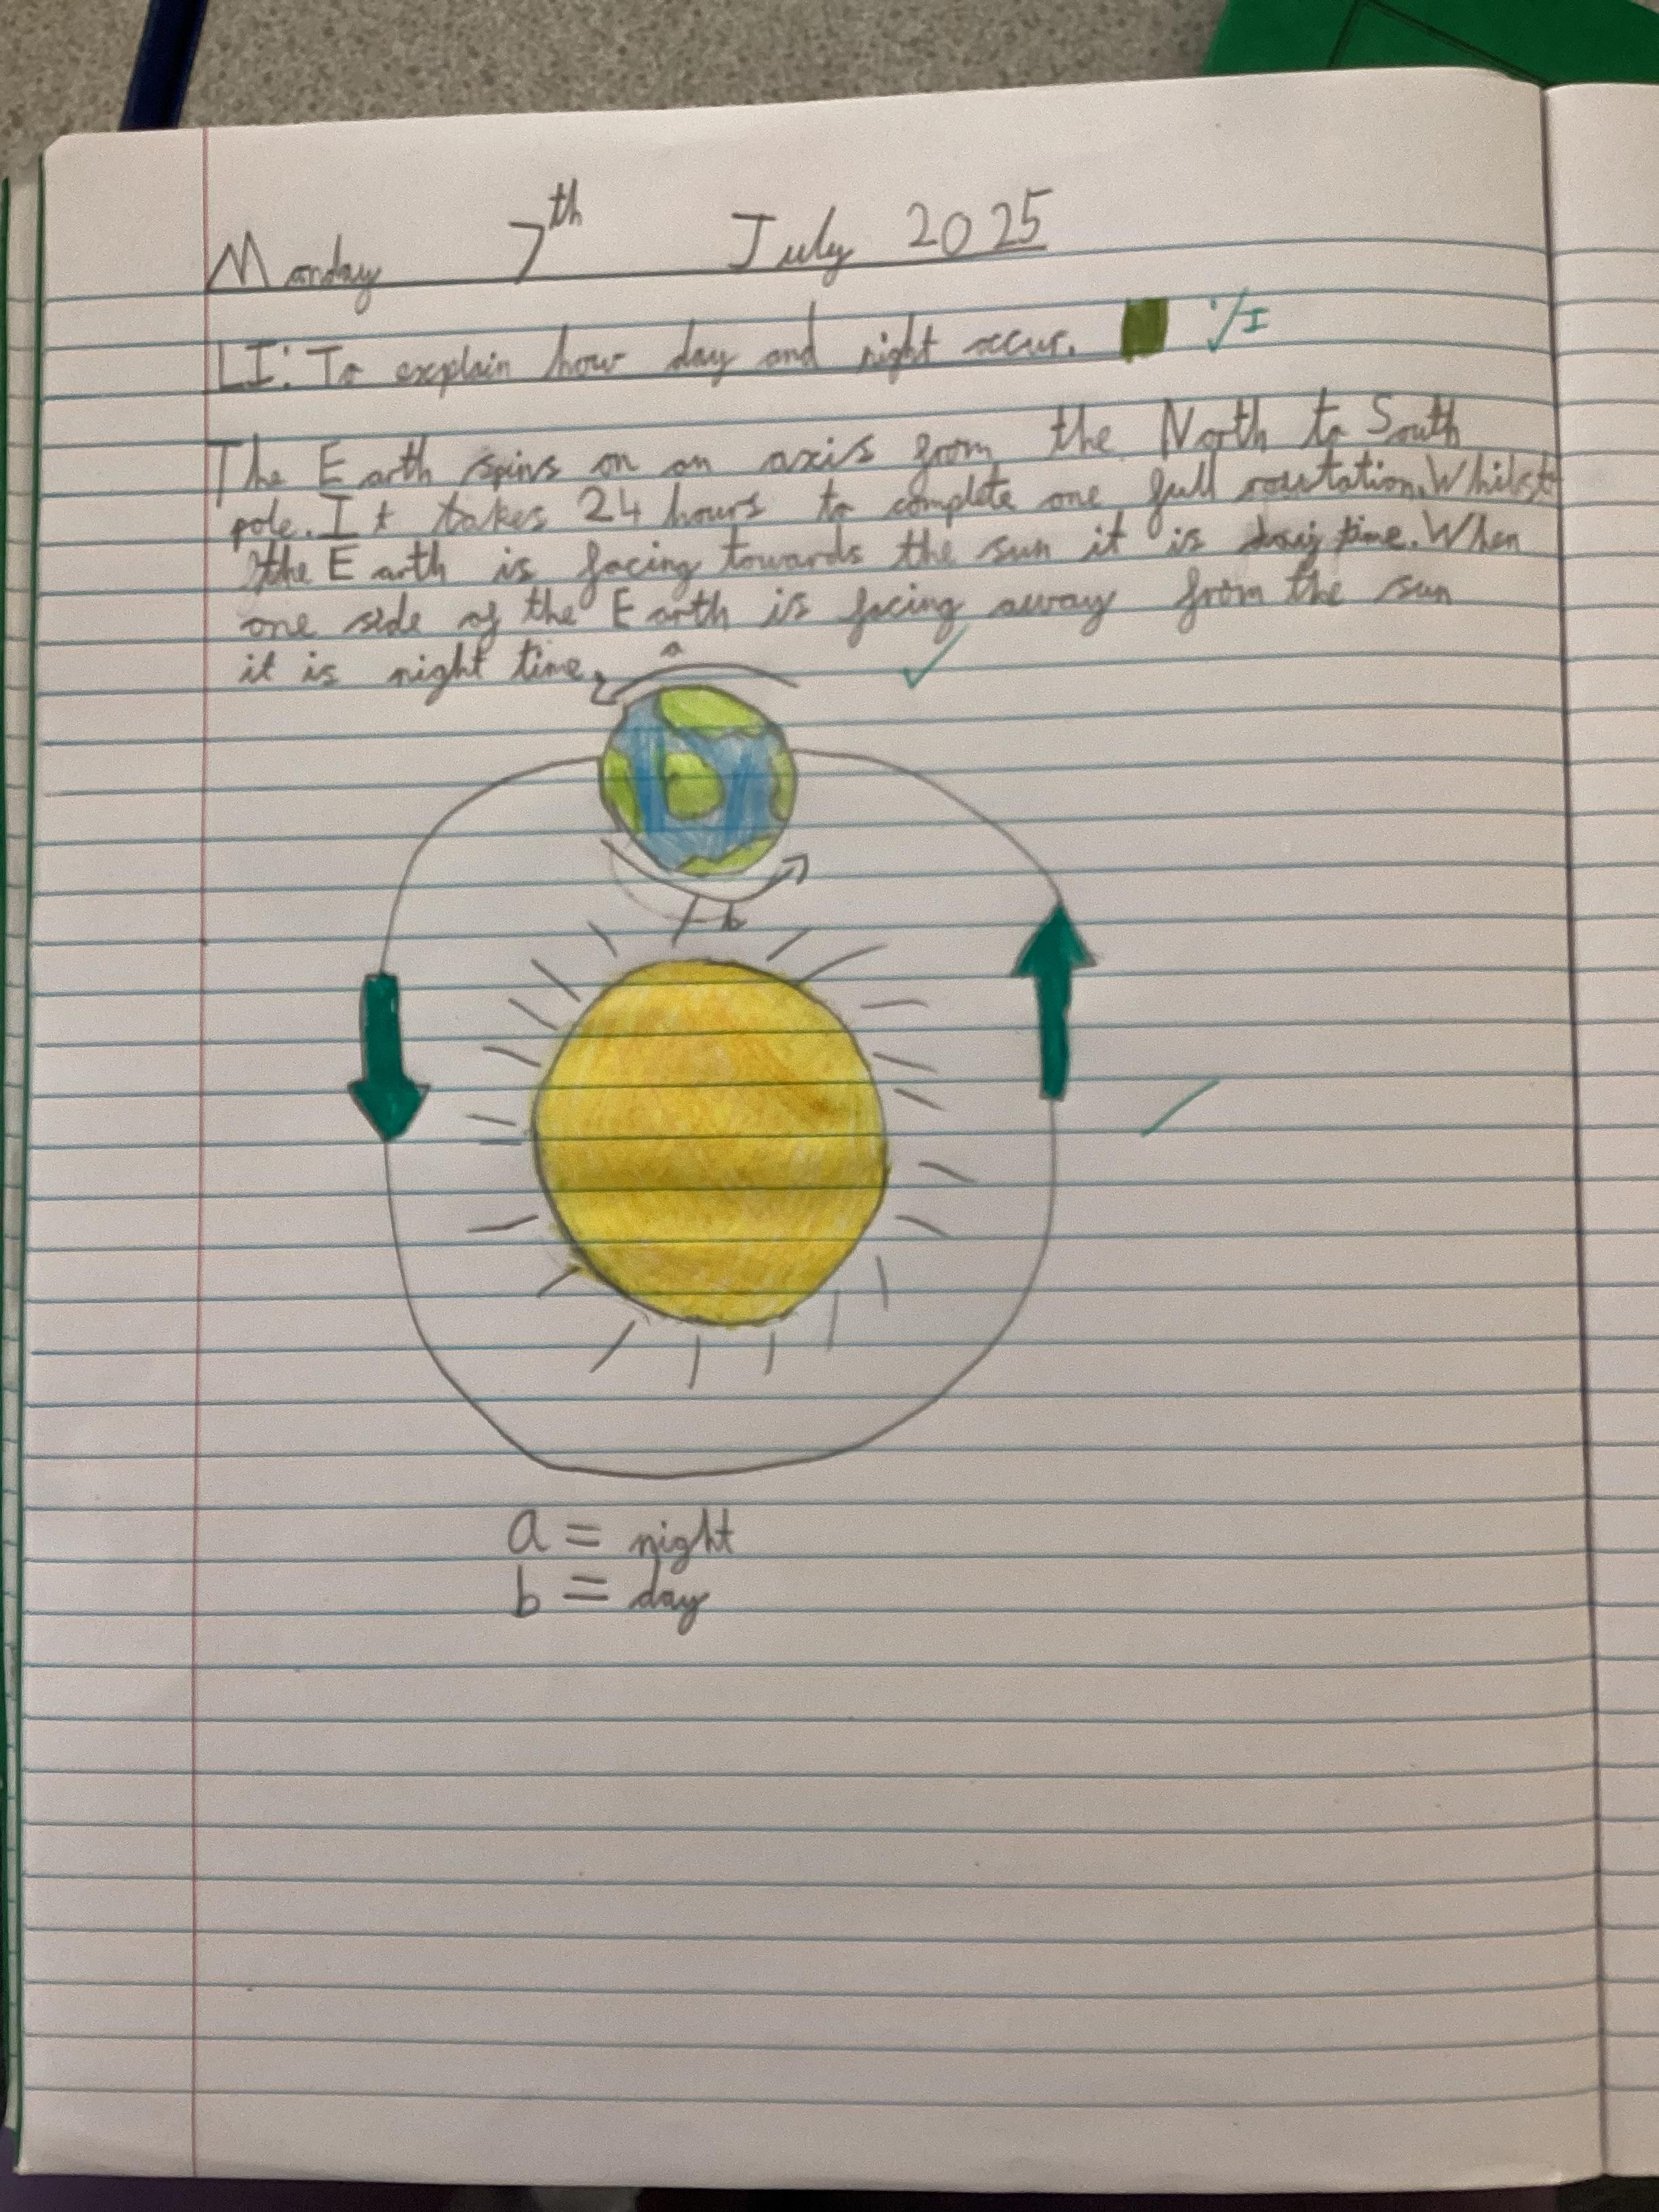 Monday 7th July 2025
LI: To explain how day and night occur. ✓I
The Earth spins on an axis from the North to South
pole. It takes 24 hours to complete one full routation. Whilst
the Earth is facing towards the sun it is day time. When
one side of the Earth is facing away from the sun
it is night time.
a
b
a = night
b = day